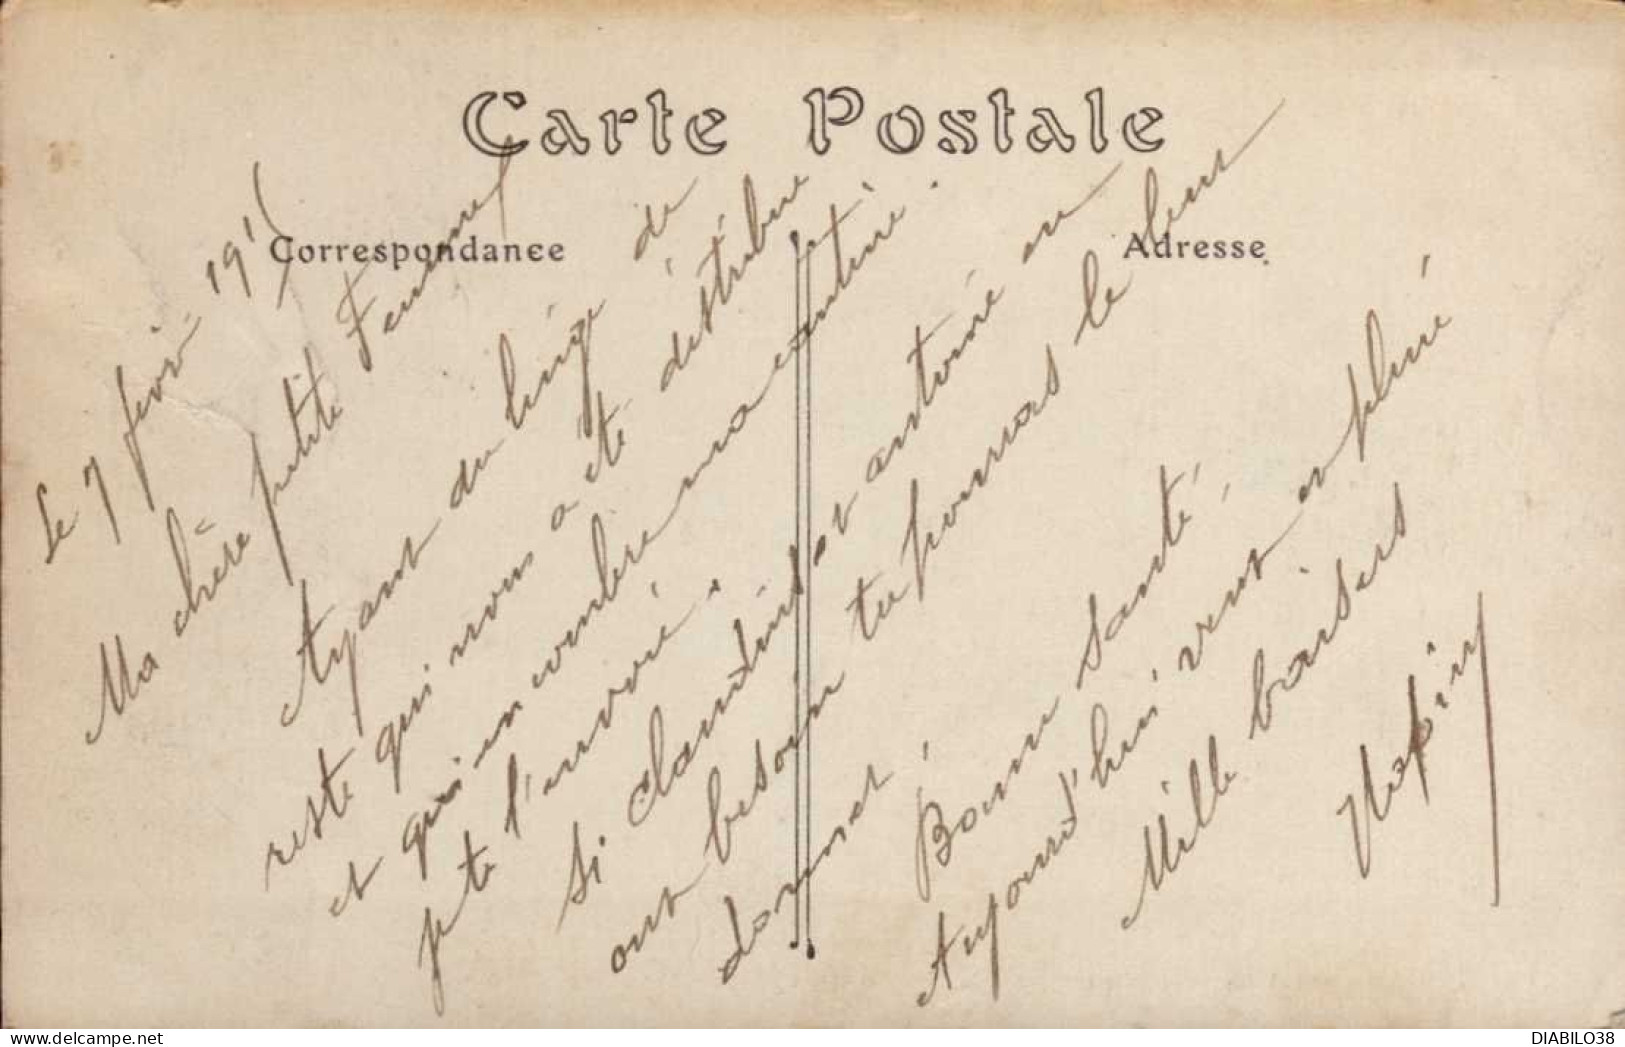 Carte Postale
Correspondance
Adresse
Le 7 févr. 191
Ma chère petite Femme
Ayant du linge de
reste qui nous a été destribué
et qui m'encombre ma cantine.
je te l'envoie.
Si Claudius et antoine en
ont besoin tu pourras le leur
donner,
Bonne santé,
Aujourd'hui vent et pluie
Mille baisers
DIABILO38